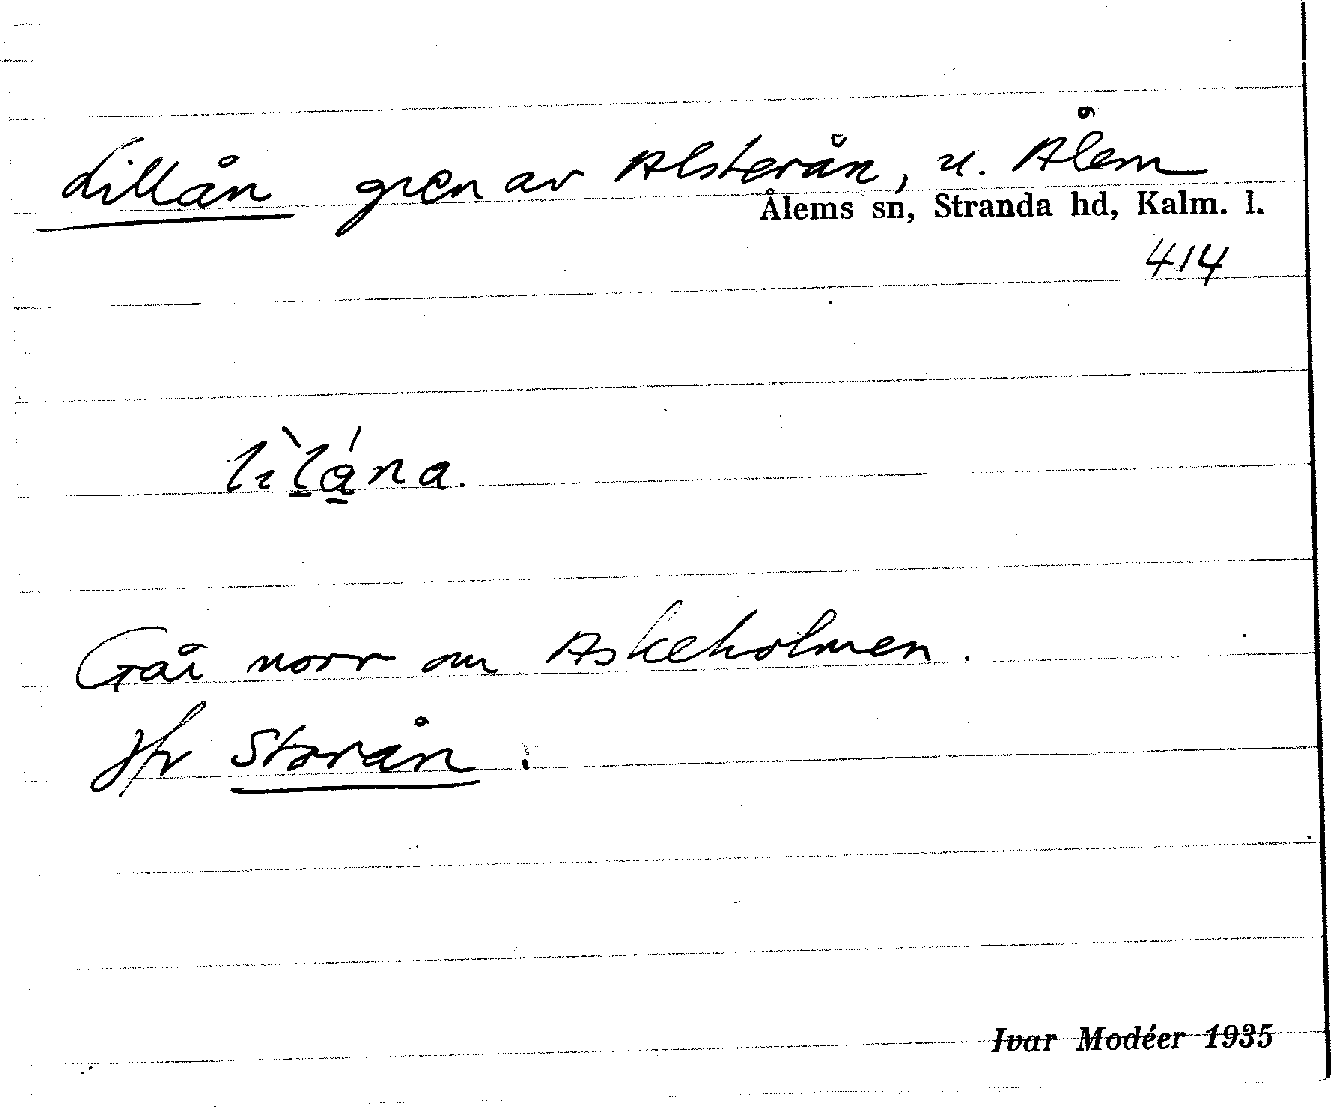 Lillån gren av Alsterån, u. Ålem
Ålems sn, Stranda hd, Kalm. l.
414
lìlána.
Går norr om Askeholmen.
Jfr Storån.
Ivar Modéer 1935